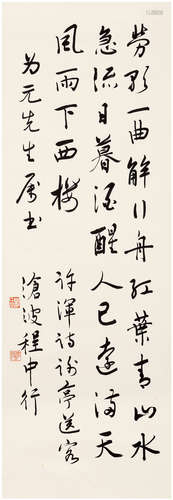 劳歌一曲解行舟红叶青山水
急流日暮酒醒人已远满天
风雨下西楼 许浑诗谢亭送客
为元先生属书 沧波程中行